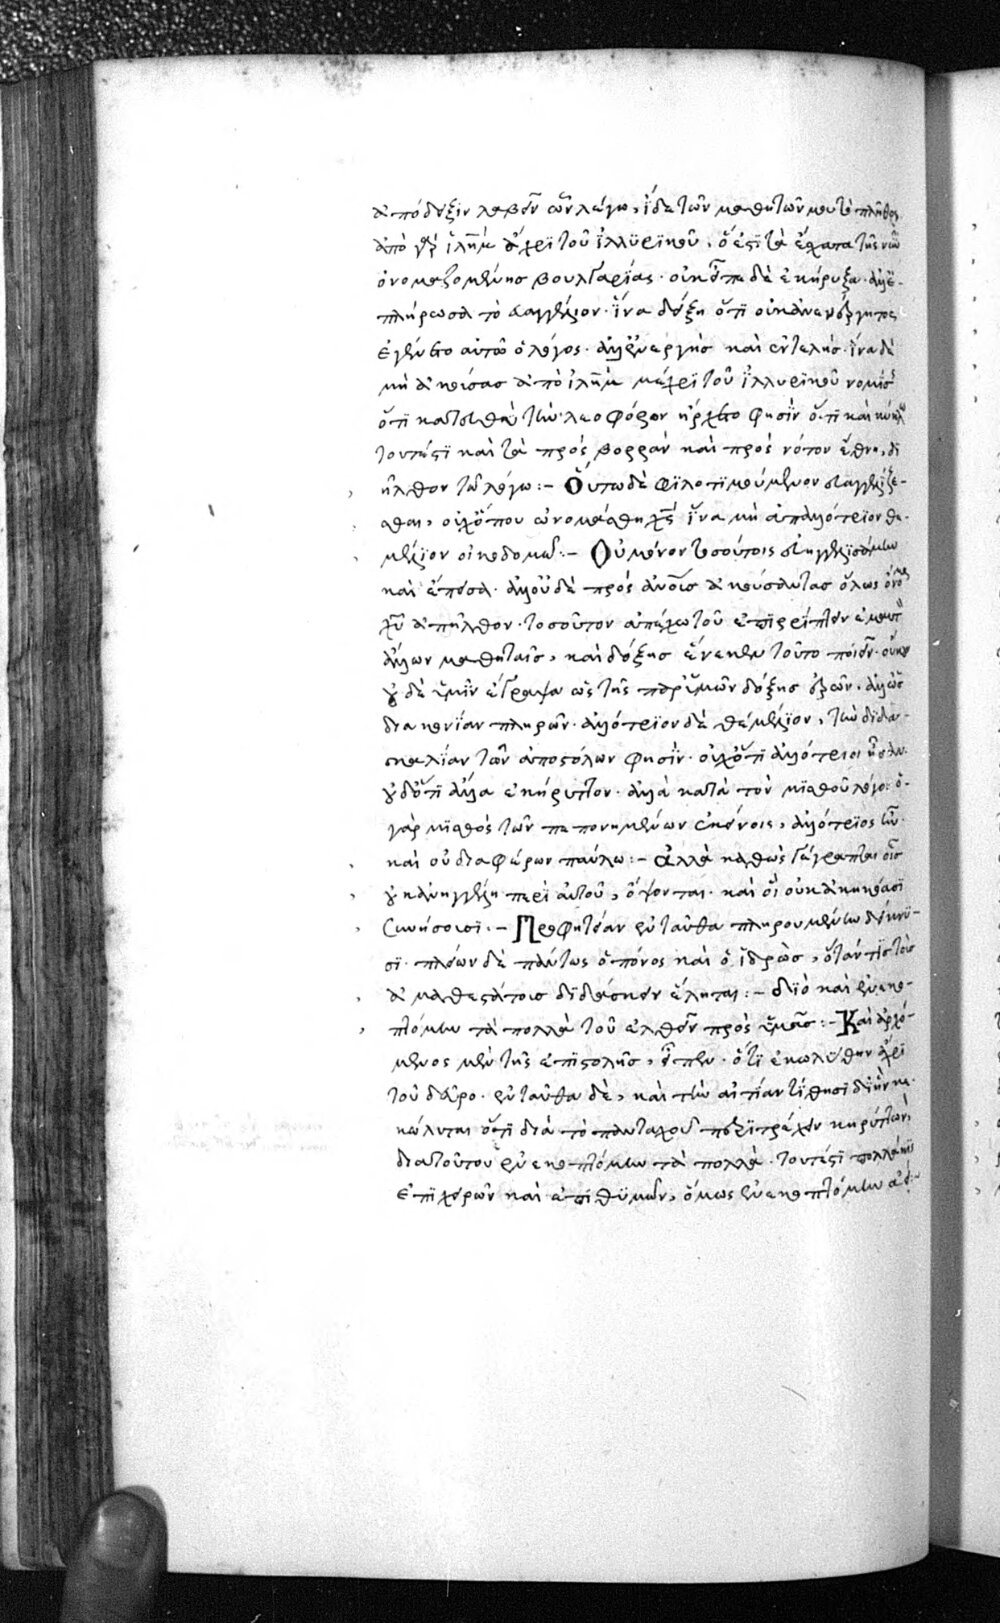 ἀπόδειξιν λαβεῖν ὧν λέγω, ἴδε τῶν μαθητῶν μου τὸ πλῆθος
ἀπὸ γὰρ ἱλῆμ ἄχρι τοῦ ἰλλυρικοῦ, ὅ ἐστι τὰ ἔσχατα τῆς νῦν
ὀνομαζομένης βουλγαρίας. οὐκ εἶπε δὲ ἐκήρυξα. ἀλλὰ ἐ-
πλήρωσα τὸ εὐαγγέλιον. ἵνα δείξη ὅτι οὐκ ἀνενέργητος
ἐγένετο αὐτῶ ὁ λόγος. ἀλλ' ἐνεργὴς καὶ ἐντελής. ἵνα δὲ
μὴ ἀκούσας ἀπὸ ἱλῆμ μέχρι τοῦ ἰλλυρικοῦ νομίσῃς
ὅτι κατ' εὐθεῖαν τὴν λεωφόρον ἤρχετο φησὶν ὅτι καὶ κύκλω
τουτέστι καὶ τὰ πρὸς βορρὰν καὶ πρὸς νότον ἔθνη, δι
ῆλθον τῶ λόγω:- Οὕτω δὲ φιλοτιμούμενον εὐαγγελίζε-
σθαι, οὐχ ὅπου ὠνομάσθη χς ἵνα μὴ ἐπ' ἀλλότριον θε-
μέλιον οἰκοδομῶ:- Οὐ μόνον τοσούτοις εὐηγγελισάμην
καὶ ἔπεισα. ἀλλ' οὐδὲ πρὸς ἀνοις ἀκούσαντας ὅλως ὄνομα
χυ ἀπῆλθον. τοσοῦτον ἀπέχω τοῦ ἐπιρρίπτειν ἐμαυτὸν
ἄλλων μαθηταῖς, καὶ δόξης ἕνεκεν τοῦτο ποιεῖν.
οὐδὲ ὑμῖν ἔγραψα ὡς τῆς παρ' ὑμῶν δόξης ἐρῶν. ἀλλ' ὡς
διακονίαν πληρῶν. ἀλλότριον δὲ θεμέλιον, τὴν διδα-
σκαλίαν τῶν ἀποστόλων φησὶν. οὐχ ὅτι ἀλλότριοι ἦσαν.
οὐδ' ὅτι ἄλλα ἐκήρυττον. ἀλλὰ κατὰ τὸν μισθοῦ λόγον. ὁ
γὰρ μισθὸς τῶν πεπονημένων ἐκείνοις, ἀλλότριος ἦν
καὶ οὐ διαφέρων παύλω:- Ἀλλὰ καθὼς γέγραπται οἷς
οὐκ ἀνηγγέλη περὶ αὐτοῦ, ὄψονται. καὶ οἳ οὐκ ἀκηκόασι
συνήσουσι:- Προφητείαν ἐνταῦθα πληρουμένην δείκνυ-
σι. πλείων δὲ πάντως ὁ πόνος καὶ ὁ ἱδρὼς, ὅταν τις τοὺς
ἀμαθεστάτους διδάσκειν ἕληται:- Διὸ καὶ ἐνεκο-
πτόμην τὰ πολλὰ τοῦ ἐλθεῖν πρὸς ὑμᾶς:- Καὶ ἀρχό-
μενος μὲν τῆς ἐπιστολῆς, εἶπεν. ὅτι ἐκωλύθην ἄχρι
τοῦ δεῦρο. ἐνταῦθα δὲ, καὶ τὴν αἰτίαν τίθησι δι' ἣν κε-
κώλυται ὅτι διὰ τὸ πανταχοῦ περιτρέχειν κηρύττων,
διατοῦτο ἐνεκοπτόμην τὰ πολλὰ. τουτέστι πολλάκις
ἐπιχειρῶν καὶ ἐπιθυμῶν, ὅμως ἐνεκοπτόμην